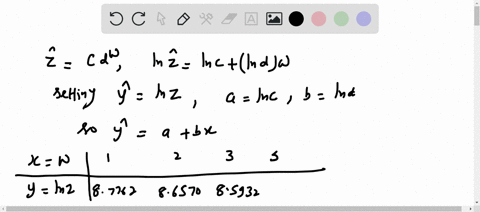 ẑ = C d^w, ln ẑ = ln c + (ln d) w
setting ŷ = ln z, a = ln c, b = ln d
so ŷ = a + bx
x = w | 1 2 3 5
y = ln z | 8.7762 8.6570 8.5932